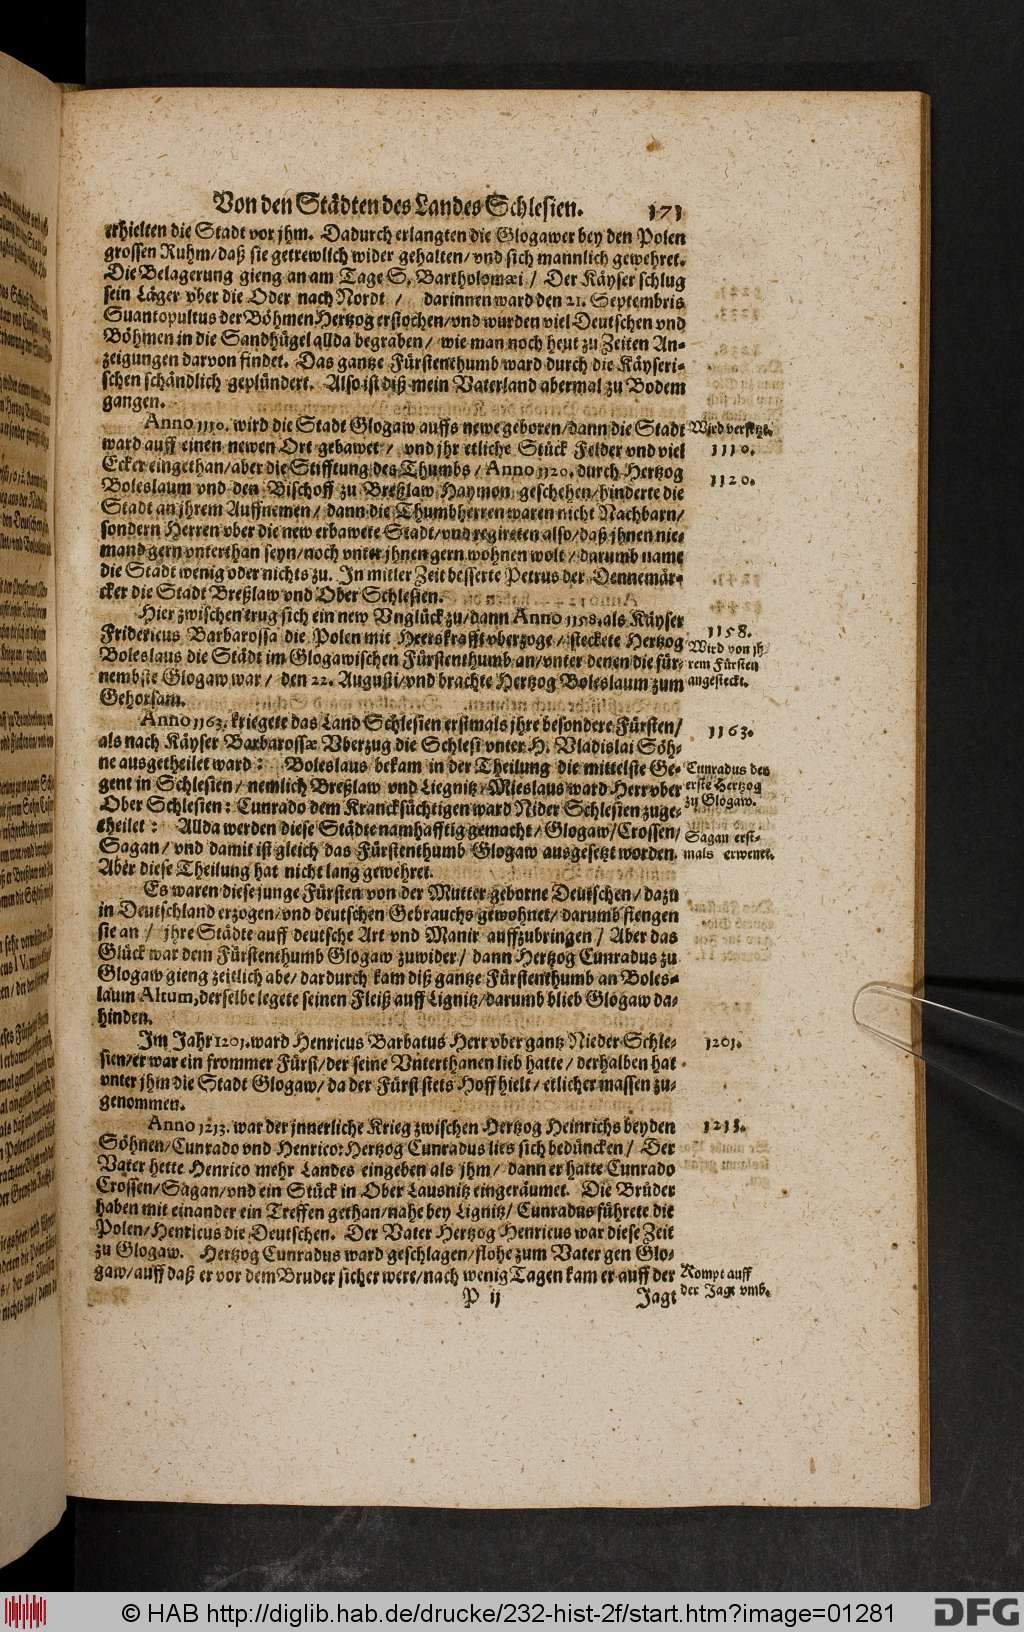 Von den Städten des Landes Schlesien. 171
erhielten die Stadt vor jhm. Dadurch erlangten die Glogawer bey den Polen
grossen Ruhm/daß sie getrewlich wider gehalten/vnd sich mannlich gewehret.
Die Belagerung gieng an am Tage S. Bartholomæi/ Der Käyser schlug
sein Läger vber die Oder nach Nordt / darinnen ward den 21. Septembris
Suantopultus der Böhmen Hertzog erstochen/vnd wurden viel Deutschen vnd
Böhmen in die Sandhügel allda begraben/ wie man noch heut zu Zeiten An-
zeigungen darvon findet. Das gantze Fürstenthumb ward durch die Käyseri-
schen schändlich geplündert. Also ist diß mein Vaterland abermal zu Bodem
gangen.
Anno 1110. wird die Stadt Glogaw auffs newe geboren/dann die Stadt
Wird versetzt.
ward auff einen newen Ort gebawet/ vnd jhr etliche Stück Felder vnd viel
1110.
Ecker eingethan/aber die Stifftung des Thumbs/ Anno 1120. durch Hertzog
1120.
Boleslaum vnd den Bischoff zu Breßlaw Haymon geschehen/hinderte die
Stadt an jhrem Auffnemen/ dann die Thumbherren waren nicht Nachbarn/
sondern Herren vber die new erbawete Stadt/vnd regireten also/daß jhnen nie-
mand gern vnterthan seyn/noch vnter jhnen gern wohnen wolt/ darumb name
die Stadt wenig oder nichts zu. In mitler Zeit besserte Petrus der Dennemär-
cker die Stadt Breßlaw vnd Ober Schlesien.
Hierzwischen trug sich ein new Vnglück zu/dann Anno 1158. als Käyser
1158.
Fridericus Barbarossa die Polen mit Heerskrafft vberzoge/ steckete Hertzog
Wird von jh-
Boleslaus die Städt im Glogawischen Fürstenthumb an/vnter denen die für-
rem Fürsten
nembste Glogaw war/ den 22. Augusti/vnd brachte Hertzog Boleslaum zum
angesteckt.
Gehorsam.
Anno 1163. kriegete das Land Schlesien erstmals jhre besondere Fürsten/
1163.
als nach Käyser Barbarossæ Vberzug die Schlesi vnter H. Vladislai Söh-
ne ausgetheilet ward: Boleslaus bekam in der Theilung die mittelste Ge-
Cunradus der
gent in Schlesien/ nemlich Breßlaw vnd Liegnitz/Mieslaus ward Herr vber
erste Hertzog
Ober Schlesien: Cunrado dem Krancksüchtigen ward Nider Schlesien zuge-
zu Glogaw.
theilet: Allda werden diese Städte namhafftig gemacht/ Glogaw/Crossen/
Sagan erst-
Sagan/ vnd damit ist gleich das Fürstenthumb Glogaw ausgesetzt worden.
mals erwenet.
Aber diese Theilung hat nicht lang gewehret.
Es waren diese junge Fürsten von der Mutter geborne Deutschen/ dazu
in Deutschland erzogen/vnd deutschen Gebrauchs gewohnet/ darumb fiengen
sie an / jhre Städte auff deutsche Art vnd Manir auffzubringen/ Aber das
Glück war dem Fürstenthumb Glogaw zuwider/ dann Hertzog Cunradus zu
Glogaw gieng zeitlich abe/dardurch kam diß gantze Fürstenthumb an Boles-
laum Altum, derselbe legete seinen Fleiß auff Lignitz/darumb blieb Glogaw da-
hinden.
Im Jahr 1201. ward Henricus Barbatus Herr vber gantz Nieder Schle-
1201.
sien/er war ein frommer Fürst/der seine Vnterthanen lieb hatte/ derhalben hat
vnter jhm die Stadt Glogaw/da der Fürst stets Hoff hielt/ etlicher massen zu-
genommen.
Anno 1213. war der jnnerliche Krieg zwischen Hertzog Heinrichs beyden
1213.
Söhnen/Cunrado vnd Henrico: Hertzog Cunradus lies sich bedüncken/ Der
Vater hette Henrico mehr Landes eingeben als jhm/ dann er hatte Cunrado
Crossen/Sagan/vnd ein Stück in Ober Lausnitz eingeräumet. Die Brüder
haben mit einander ein Treffen gethan/nahe bey Lignitz/ Cunradus führete die
Polen/Henricus die Deutschen. Der Vater Hertzog Henricus war diese Zeit
zu Glogaw. Hertzog Cunradus ward geschlagen/flohe zum Vater gen Glo-
gaw/auff daß er vor dem Bruder sicher were/nach wenig Tagen kam er auff der
Kompt auff
der Jagt vmb.
P ij Jagt
© HAB http://diglib.hab.de/drucke/232-hist-2f/start.htm?image=01281
DFG